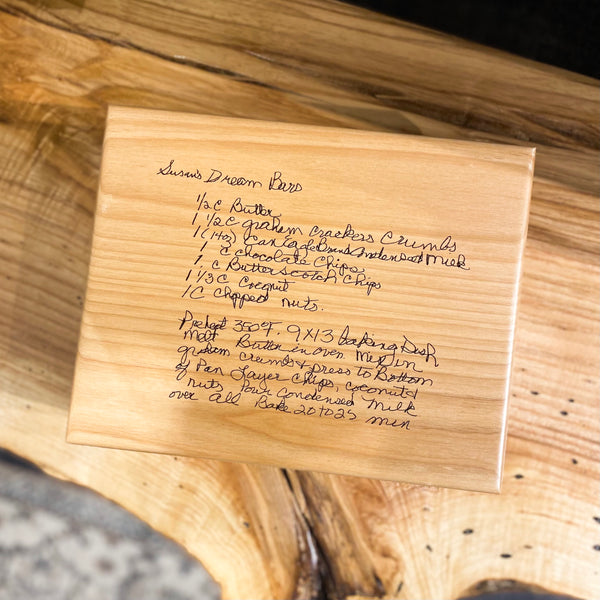 Susan's Dream Bars
1/2 C Butter
1 1/2 C graham crackers Crumbs
1 (14oz) Can Eagle Brand Condensed Milk
1 C chocolate Chips
1 C Butterscotch Chips
1 1/3 C Coconut
1 C chopped nuts.
Preheat 350°F. 9X13 baking Dish
Melt Butter in oven Mix in
graham crumbs & press to Bottom
of Pan Layer Chips, coconut &
nuts Pour Condensed Milk
over All Bake 20 to 25 min